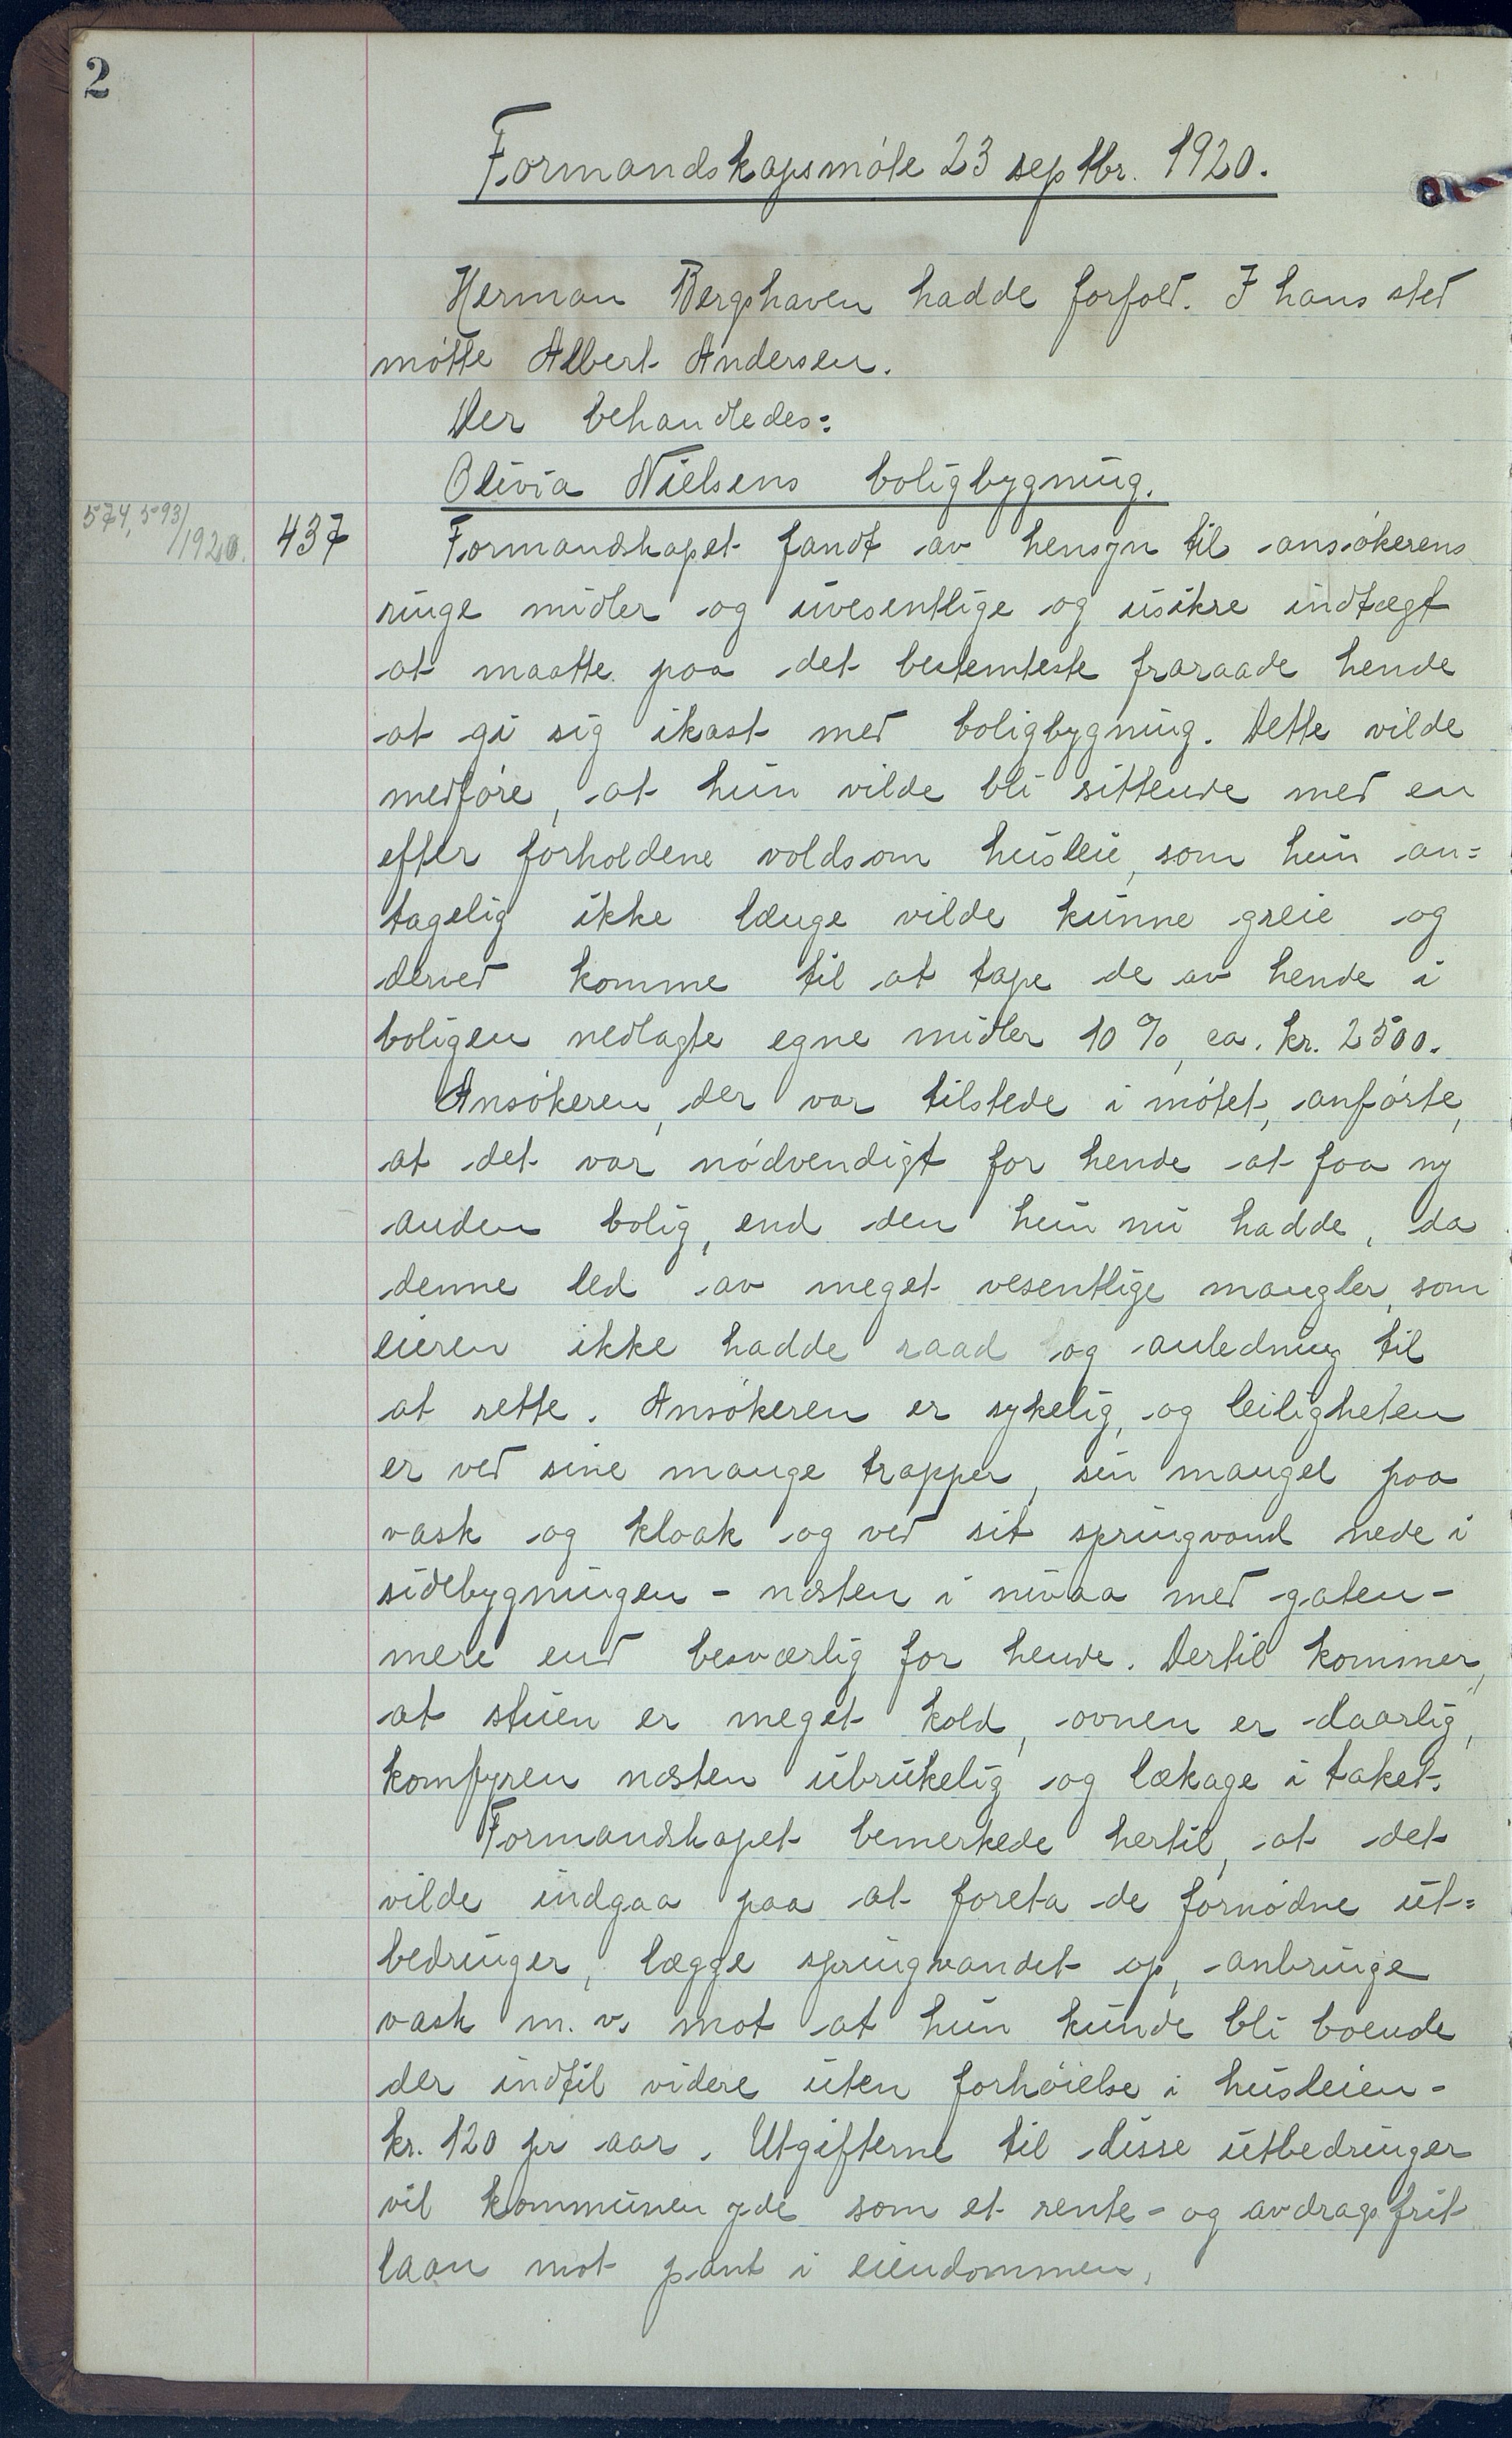 2
Formandskapsmöte 23 septbr. 1920.
Herman Bergshaven hadde forfold. I hans sted
mötte Albert Andersen.
Der behandledes:
Olivia Nielsens boligbygning.
574, 593/
/1920.
437
Formandskapet fandt av hensyn til ansökerens
ringe midler og uvesentlige og usikre indtægt
at maatte paa det bestemteste fraraade hende
at gi sig ikast med boligbygning. Dette vilde
medföre, at hun vilde bli sittende med en
efter forholdene voldsom husleie, som hun an=
tagelig ikke længe vilde kunne greie og
derved komme til at tape de av hende i
boligen nedlagte egne midler 10 %, ca. kr. 2500.
Ansökeren, der var tilstede i mötet, anförte,
at det var nödvendigt for hende at faa ny
anden bolig, end den hun nu hadde, da
denne led av meget vesentlige mangler, som
eieren ikke hadde raad og anledning til
at rette. Ansökeren er sykelig, og leiligheten
er ved sine mange trapper, sin mangel paa
vask og kloak og ved sit springvand nede i
sidebygningen - næsten i nivaa med gaten -
mere end besværlig for hende. Dertil kommer,
at stuen er meget kold, ovnen er daarlig,
komfyren næsten ubrukelig og lækage i taket.
Formandskapet bemerkede hertil, at det
vilde indgaa paa at foreta de fornödne ut=
bedringer, lægge springvandet op, anbringe
vask m. v. mot at hun kunde bli boende
der indtil videre uten forhöielse i husleien -
kr. 120 pr aar. Utgifterne til disse utbedringer
vil kommunen yde som et rente- og avdragsfrit
laan mot pant i eiendommen.